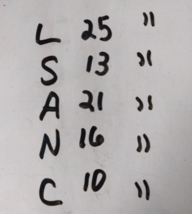 L 25 "
S 13 "
A 21 "
N 16 "
C 10 "